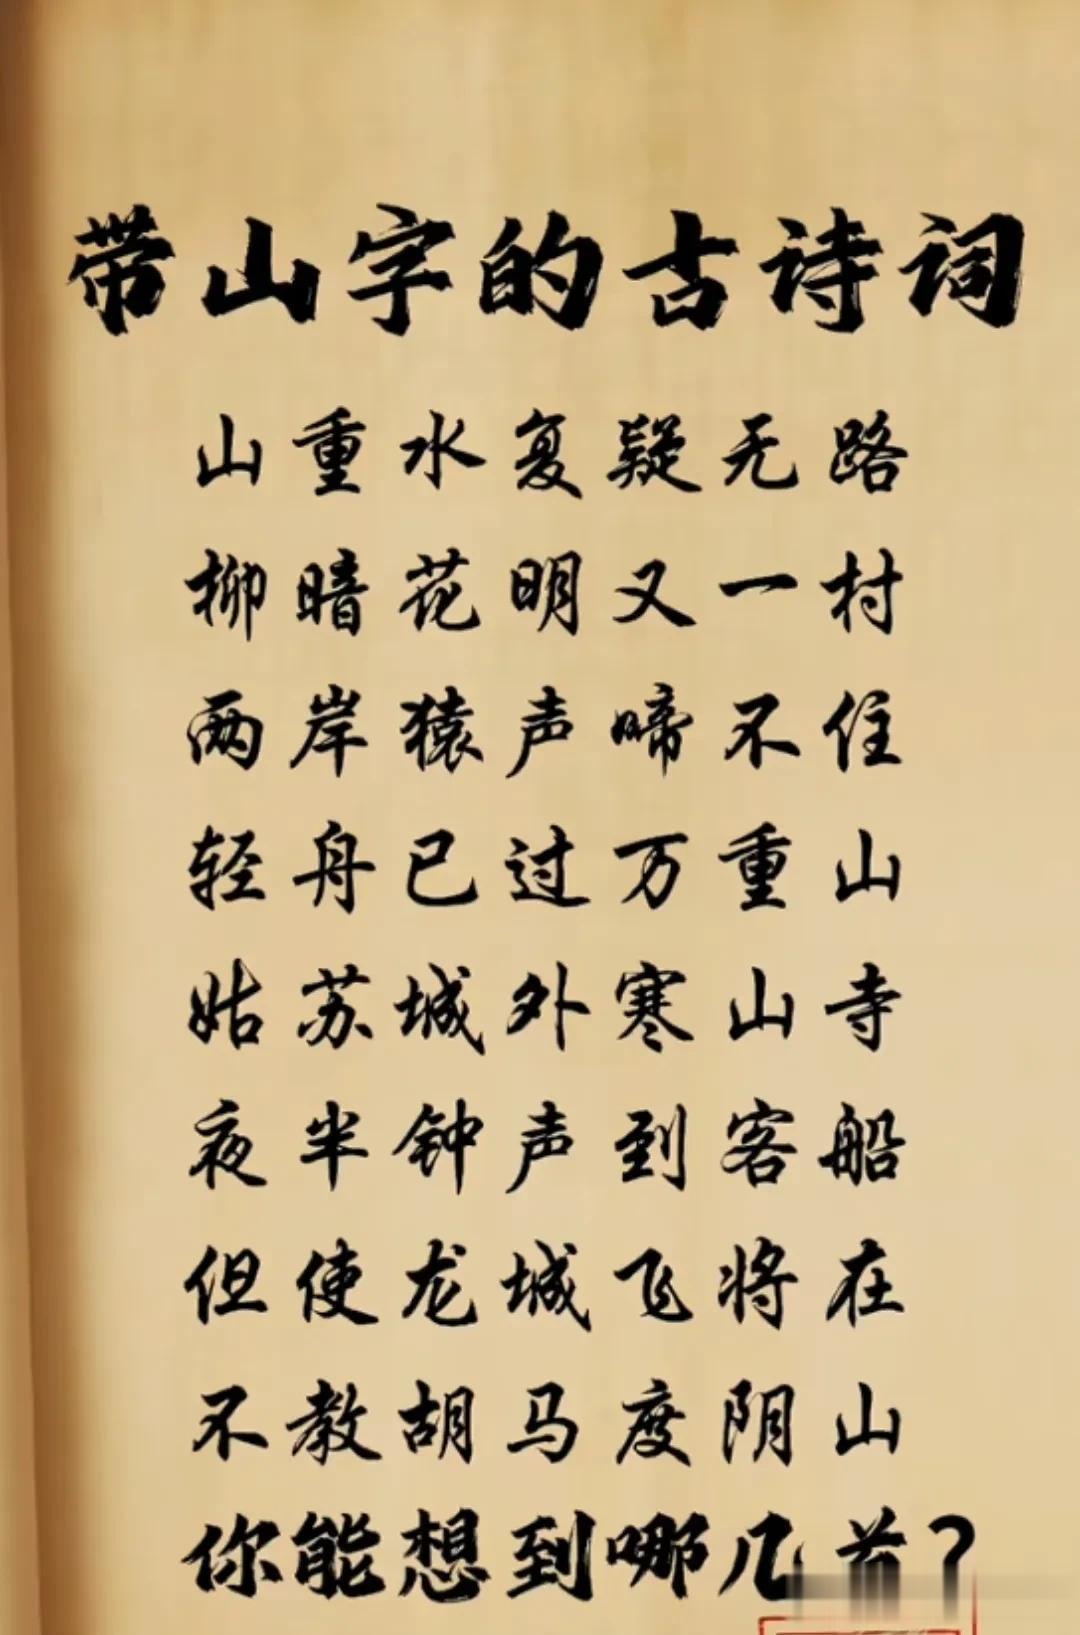 带山字的古诗词
山重水复疑无路
柳暗花明又一村
两岸猿声啼不住
轻舟已过万重山
姑苏城外寒山寺
夜半钟声到客船
但使龙城飞将在
不教胡马度阴山
你能想到哪几首？